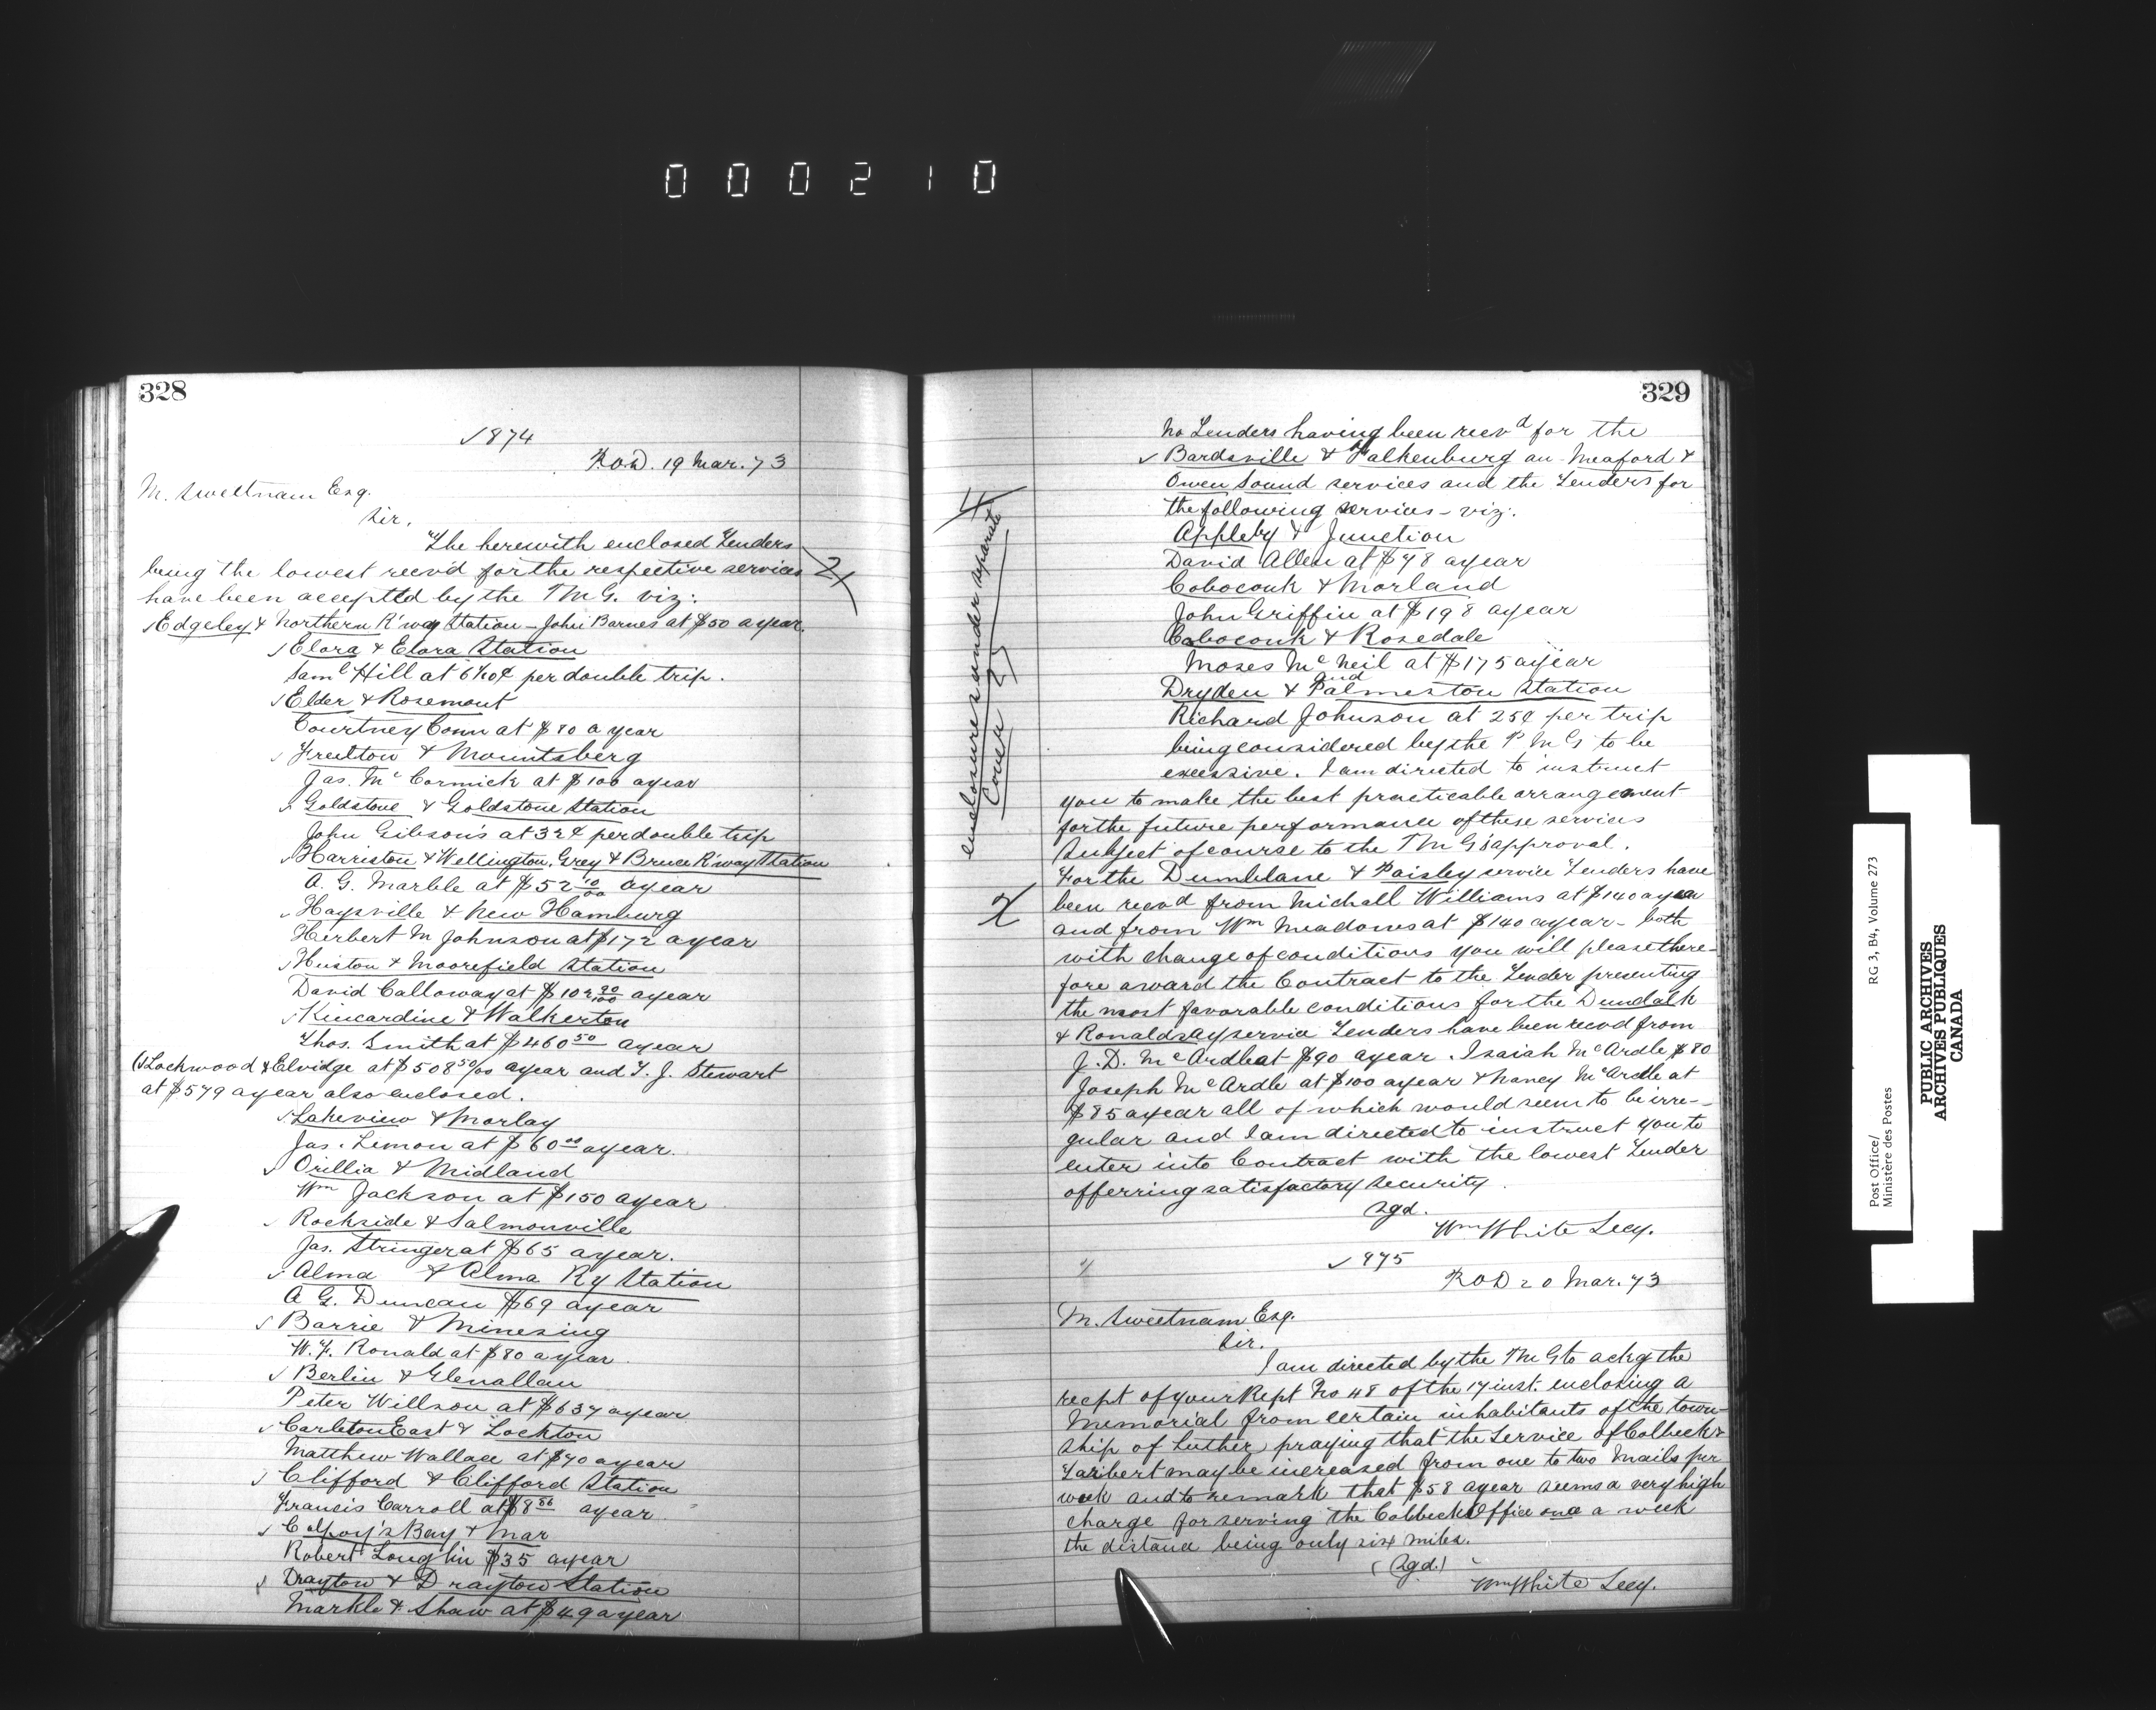 000210
328
1874
P.O.D. 19 Mar. 73
M. Sweetnam Esq.
Sir,
The herewith enclosed Tenders
being the lowest recvd for the respective services
have been accepted by the P.M.G. viz:
Edgeley & Northern R'way Station – John Barnes at $50 a year.
Elora & Elora Station
Saml Hill at 6½¢ per double trip.
Elder & Rosemont
Courtney Conn at $80 a year
Freelton & Mountsberg
Jas. McCormick at $100 a year
Goldstone & Goldstone Station
John Gibson's at 32¢ per double trip
Harriston & Wellington, Grey & Bruce R'way Station
A. G. Marble at $52 10/00 a year
Haysville & New Hamburg
Herbert M Johnson at $172 a year
Huston & Moorefield Station
David Calloway at $102 90/100 a year
Kincardine & Walkerton
Thos. Smith at $460 50 a year
(Lockwood & Elvidge at $508 50/00 a year and T. J. Stewart
at $579 a year also enclosed.
Lakeview & Morlay
Jas. Lemon at $60 00 a year.
Orillia & Midland
Wm Jackson at $150 a year
Rockside & Salmonville
Jas. Stringer at $65 a year.
Alma & Alma Ry Station
A G. Duncan $69 a year
Barrie & Minesing
W. F. Ronald at $80 a year
Berlin & Glenallan
Peter Willson at $637 a year
Carleton East & Lockton
Matthew Wallace at $70 a year
Clifford & Clifford Station
Francis Carroll at $8 86 a year
Colpoy's Bay & Mar
Robert Loughlin $35 a year
Drayton & Drayton Station
Markle & Shaw at $49 a year
329
No Tenders having been recvd for the
Bardsville & Falkenburg an Meaford &
Owen Sound services and the Tenders for
the following services – viz:
Appleby & Junction
David Allen at $78 a year
Coboconk & Norland
John Griffin at $198 a year
Coboconk & Rosedale
Moses McNeil at $175 a year
and
Dryden & Palmerston Station
Richard Johnson at 25¢ per trip
being considered by the P.M.G to be
excessive. I am directed to instruct
you to make the best practicable arrangement
for the future performance of these services
subject of course to the P.M.G's approval.
For the Dumblane & Paisley service Tenders have
been recvd from Michall Williams at $140 a year
and from Wm Meadows at $140 a year – both
with change of conditions you will please there-
fore award the Contract to the Tender presenting
the most favorable conditions for the Dundalk
& Ronaldsay service Tenders have been recvd from
J. D. McArdle at $90 a year. Isaiah McArdle $80
Joseph McArdle at $100 a year & Nancy McArdle at
$85 a year all of which would seem to be irre-
gular and I am directed to instruct you to
enter into Contract with the lowest Tender
offerring satisfactory security.
Sgd.
Wm White Secy.
enclosures under separate
Cover
975
P.O.D 20 Mar. 73
M. Sweetnam Esq.
Sir.
I am directed by the P.M.G to ackg the
recpt of your Rept No 48 of the 17 inst. enclosing a
Memorial from certain inhabitants of the town-
ship of Luther, praying that the service of Colbeck &
Taribert may be increased from one to two Mails per
week and to remark that $58 a year seems a very high
charge for serving the Colbeck Office once a week
the distance being only six miles.
(Sgd.)
Wm White Secy.
Post Office/ RG 3, B4, Volume 273
Ministère des Postes
PUBLIC ARCHIVES
ARCHIVES PUBLIQUES
CANADA